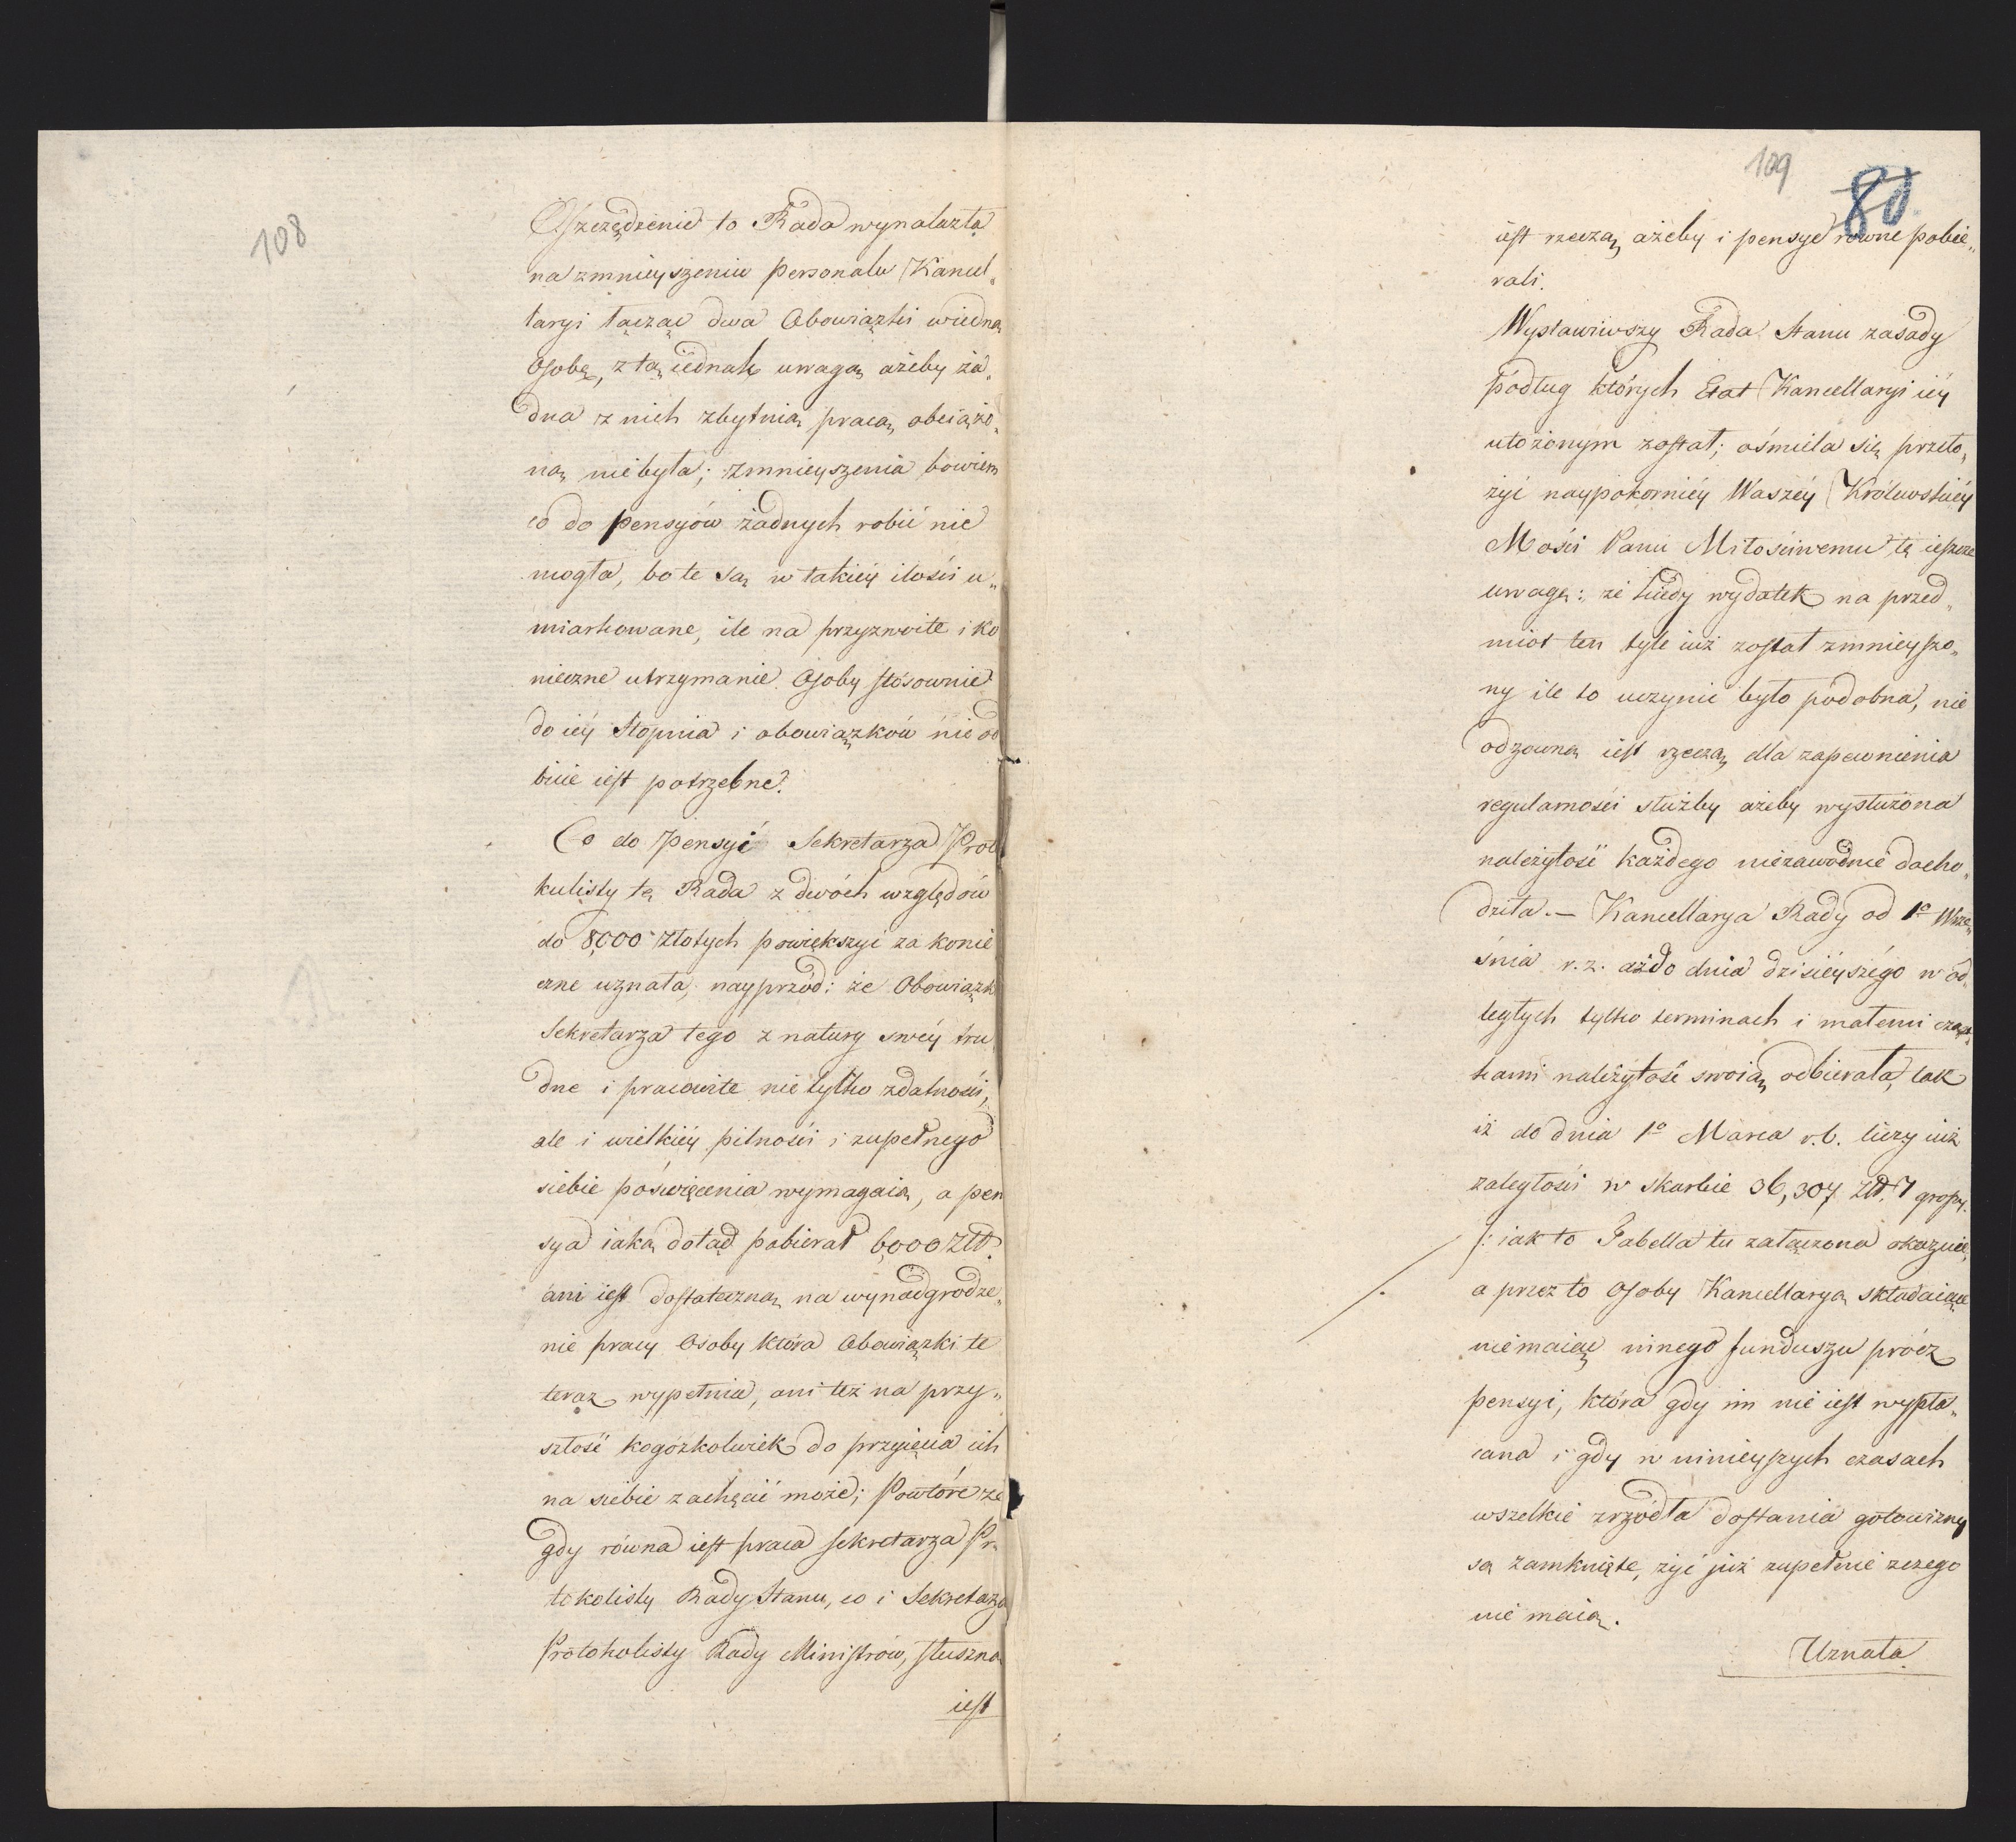 108
Oszczędzenie to Rada wynalazła
na zmnieyszeniu personalu Kancel„
laryi łącząc dwa Obowiązki wiedną
Osobę, z tą iednak uwagą ażeby ża„
dna z nich zbytnią pracą obciążo„
ną niebyła; zmnieyszenia bowiem
co do pensyów żadnych robić nie
mogła, bo te są w takiéy ilości u„
miarkowane, ile na przyzwoite i ko
nieczne utrzymanie Osoby stósownie
do iéy Stopnia i obowiązków nieod
bicie iest potrzebne.
Co do pensyi Sekretarza Proto
kulisty tę Rada z dwóch względów
do 8,000 Złotych powiększyć za konie
czne uznała, nayprzód: że Obowiązki
Sekretarza tego z natury swéy tru
dne i pracowite nie tylko zdatności,
ale i wielkiéy pilności i zupełnego
siebie poświęcenia wymagaią, a pen
sya iaką dotąd pobierał 6,000 Złł.
ani iest dostateczną na wynadgrodze„
nie pracy Osoby która Obowiązki te
teraz wypełnia, ani też na przy„
szłość kogożkolwiek do przyięcia ich
na siebie zachęcić może; Powtóre że
gdy równa iest praca Sekretarza Pr„
tokolisty Rady Stanu, co i Sekretarza
Protokolisty Rady Ministrów, słuszną
iest
109
80
iest rzeczą ażeby i pensye równe pobie„
rali.
Wystawiwszy Rada Stanu zasady
podług których Etat Kancellaryi iéy
ułożonym został; ośmiela się przeło„
żyć naypokorniéy Waszéy Królewskiéy
Mości Panu Miłościwemu tę ieszcze
uwagę: że kiedy wydatek na przed„
miot ten tyle iuż został zmnieyszo„
ny ile to uczynić było podobna, nie
odzowną iest rzeczą dla zapewnienia
regularności służby ażeby wysłużona
należytość każdego niezawodnie docho„
dziła. — Kancellarya Rady od 1º Wrze„
śnia r.z. aż do dnia dzisiéyszégo w od„
ległych tylko terminach i małemi cząst„
kami należytość swoią odbierała, tak
iż do dnia 1º Marca r.b. liczy iuż
zaległości w Skarbie 36,307 Złł. 7 groszy.
/: iak to Tabella tu załączona okazuie,
a przez to Osoby Kancellaryą składaiące
niemaiąc innego funduszu prócz
pensyi, która gdy im nie iest wypła„
cana i gdy w ninieyszych czasach
wszelkie zrzódła dostania gotowizny
są zamknięte, żyć już zupełnie zczego
nie maią.
Uznała